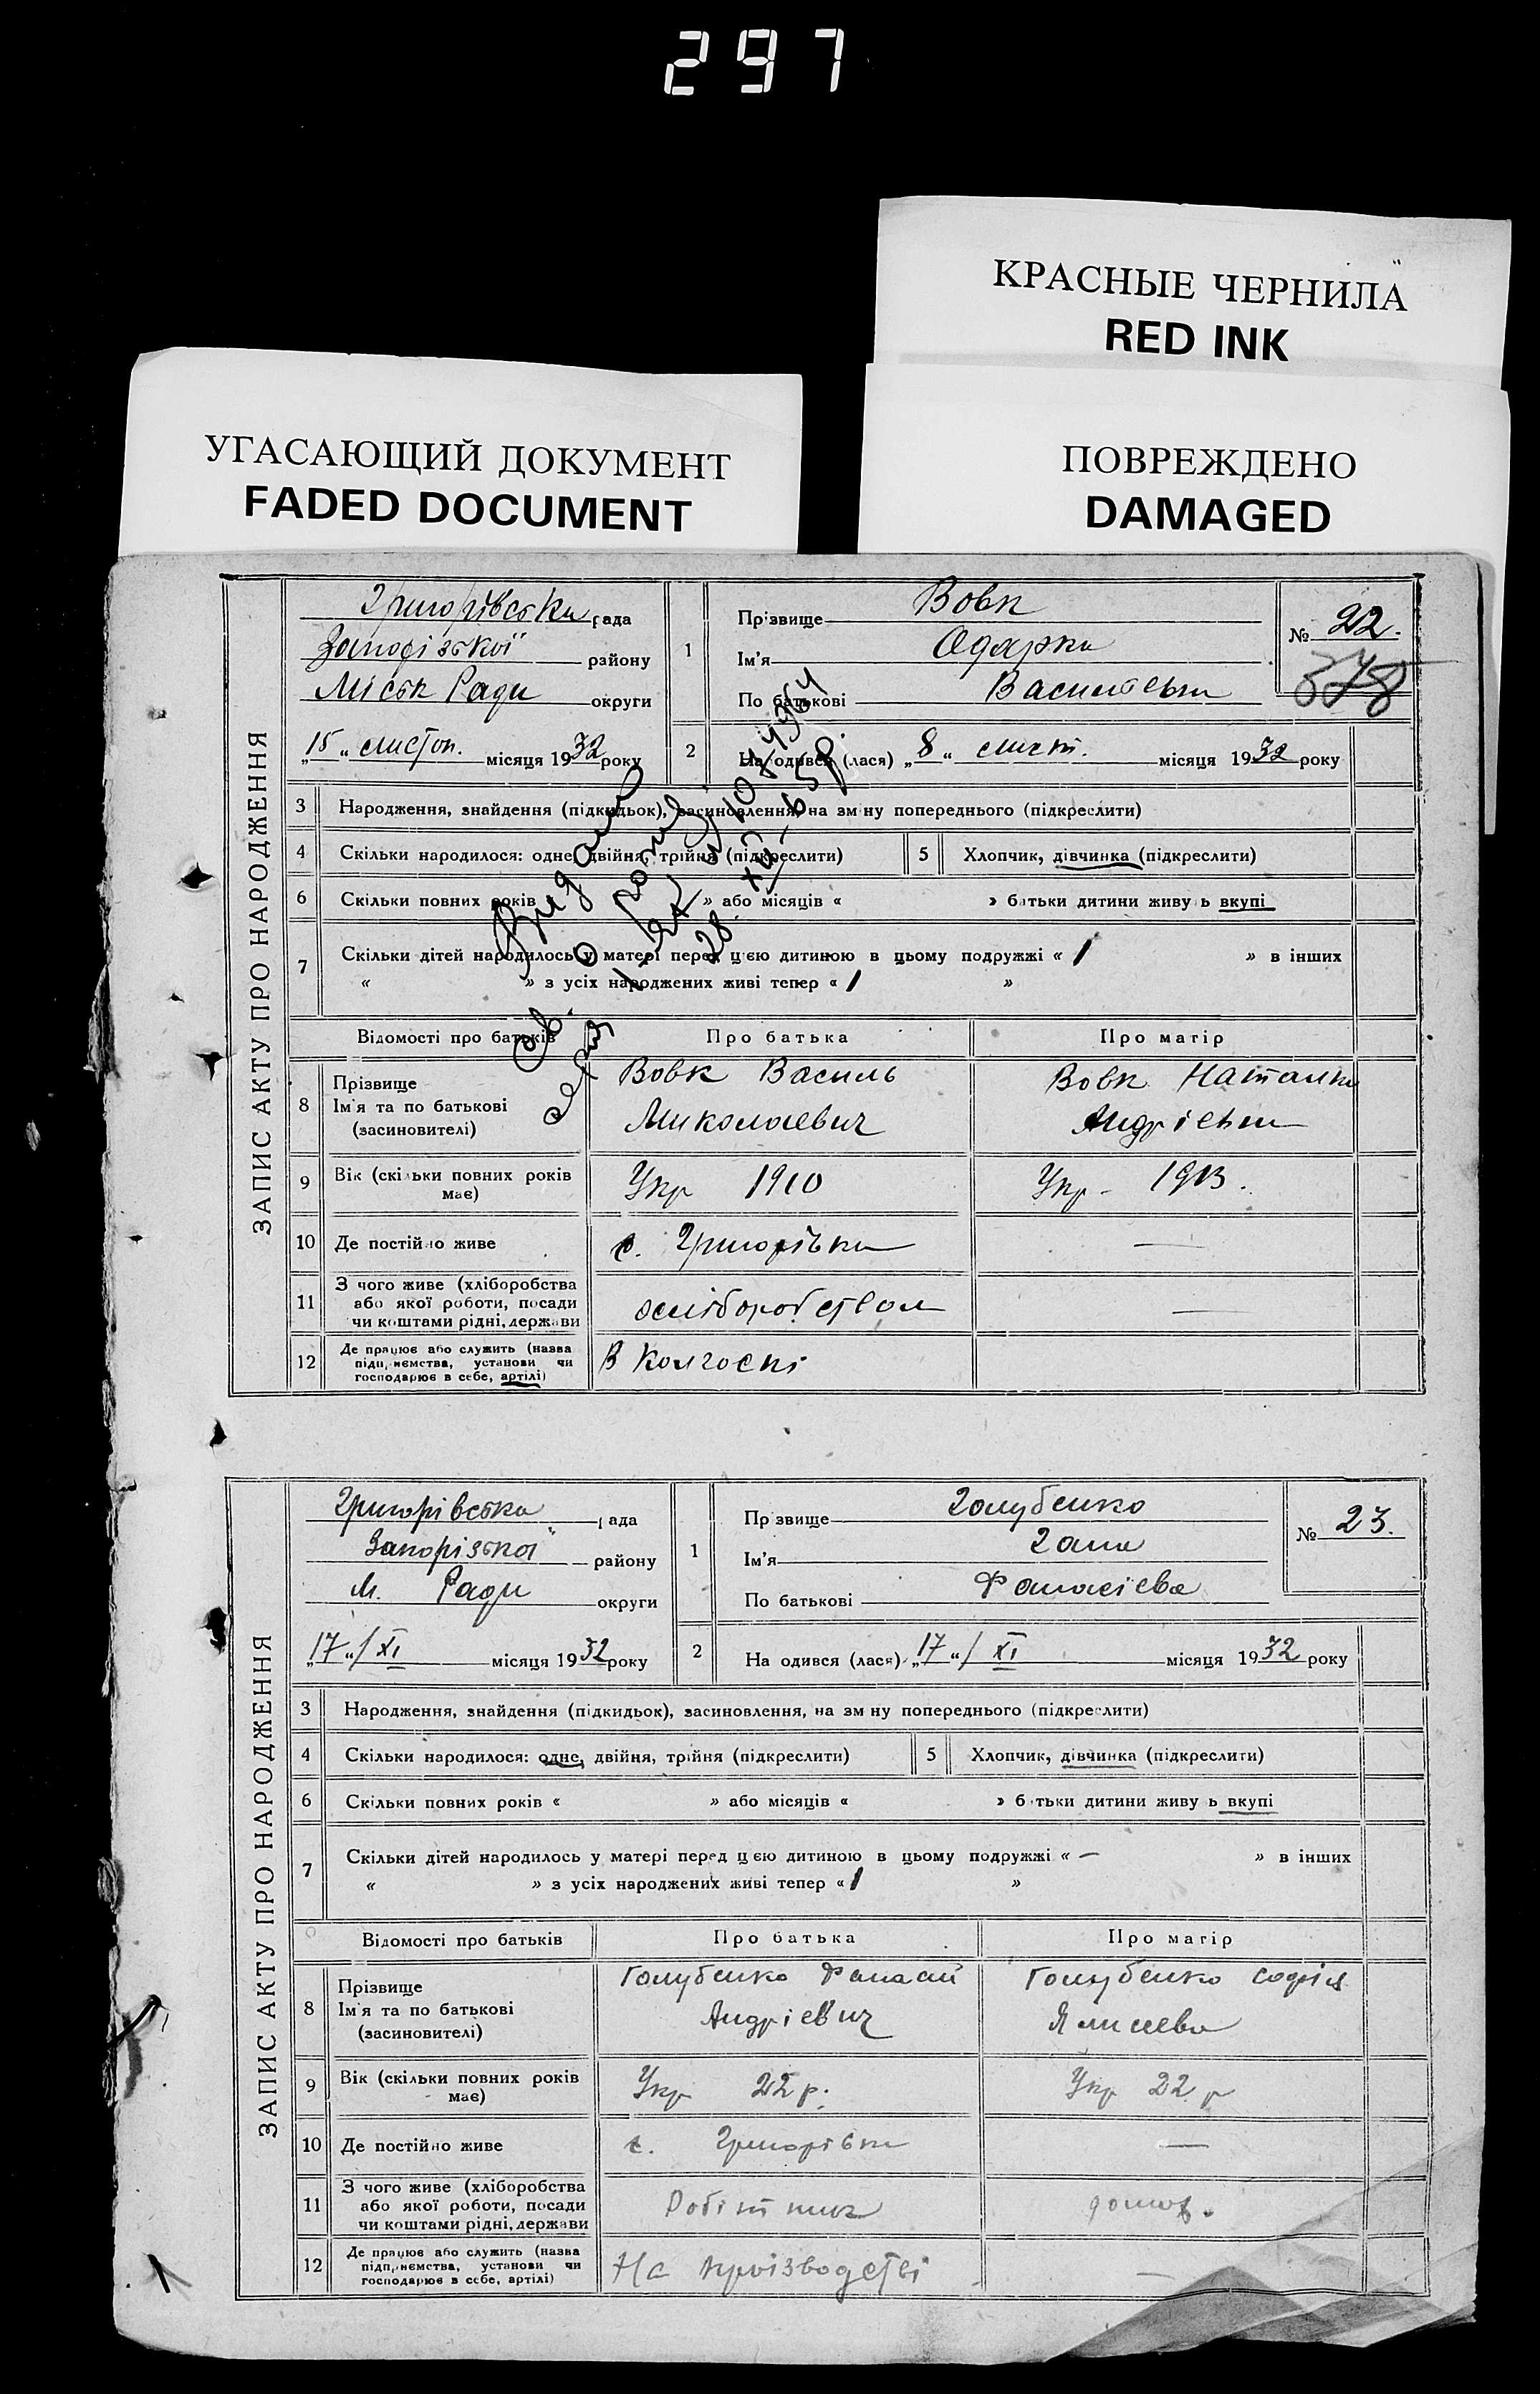 297
КРАСНЫЕ ЧЕРНИЛА
RED INK
УГАСАЮЩИЙ ДОКУМЕНТ
FADED DOCUMENT
ПОВРЕЖДЕНО
DAMAGED
ЗАПИС АКТУ ПРО НАРОДЖЕННЯ
Григорівська рада
Запорізької району
Міськ Ради округи
„15“ листоп. місяця 1932 року
1 Прізвище Вовк
Ім'я Одарка
По батькові Василевна
№ 22.
378
2 На одився (лася) „8“ лист. місяця 1932 року
3 Народження, знайдення (підкидьок), засиновлення, на зміну попереднього (підкреслити)
4 Скільки народилося: одне, двійня, трійня (підкреслити) 5 Хлопчик, дівчинка (підкреслити)
6 Скільки повних років » або місяців « » батьки дитини живуть вкупі
7 Скільки дітей народилось у матері перед цією дитиною в цьому подружжі « 1 » в інших
« » з усіх народжених живі тепер « 1 »
Видано
28. XII-65 р.
Відомості про батьків Про батька Про матір
8 Прізвище
Ім'я та по батькові
(засиновителі)
Вовк Василь
Миколаевич
Вовк Наталка
Андріевна
9 Вік (скільки повних років
має)
Укр 1910
Укр - 1913.
10 Де постійно живе с. Григорівка —
11 З чого живе (хліборобства
або якої роботи, посади
чи коштами рідні, держави
хліборобством —
12 Де працює або служить (назва
підприємства, установи чи
господарює в себе, артілі)
В Колгоспі
ЗАПИС АКТУ ПРО НАРОДЖЕННЯ
Григорівська рада
Запорізької району
М. Ради округи
„17“/XI місяця 1932 року
1 Прізвище Голубенко
Ім'я Гана
По батькові Фанасієва
№ 23.
2 На одився (лася) „17“/XI місяця 1932 року
3 Народження, знайдення (підкидьок), засиновлення, на зміну попереднього (підкреслити)
4 Скільки народилося: одне, двійня, трійня (підкреслити) 5 Хлопчик, дівчинка (підкреслити)
6 Скільки повних років « » або місяців « » батьки дитини живуть вкупі
7 Скільки дітей народилось у матері перед цією дитиною в цьому подружжі « — » в інших
« » з усіх народжених живі тепер « 1 »
Відомості про батьків Про батька Про матір
8 Прізвище
Ім'я та по батькові
(засиновителі)
Голубенко Фанасий
Андріевич
Голубенко Софія
9 Вік (скільки повних років
має)
Укр 22 р.
Укр 22 р
10 Де постійно живе с. Григорівка —
11 З чого живе (хліборобства
або якої роботи, посади
чи коштами рідні, держави
Робітник домог.
12 Де працює або служить (назва
підприємства, установи чи
господарює в себе, артілі)
На производстві —